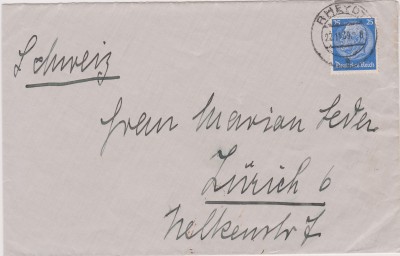 RHEYDT
25 25
Deutsches Reich
Schweiz
Frau Marian Leder
Zürich 6
Nelkenstr 7